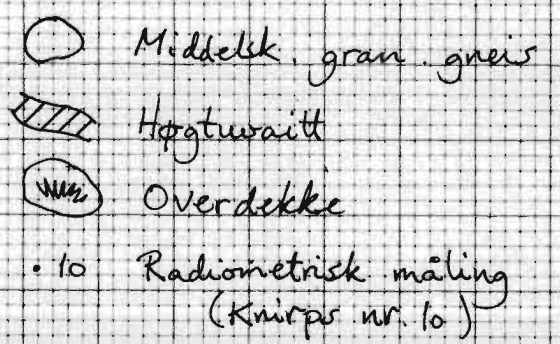 Middelsk. gran. gneis
Høgtuvaitt
Overdekke
• 10 Radiometrisk måling
(Knirps nr. 10)